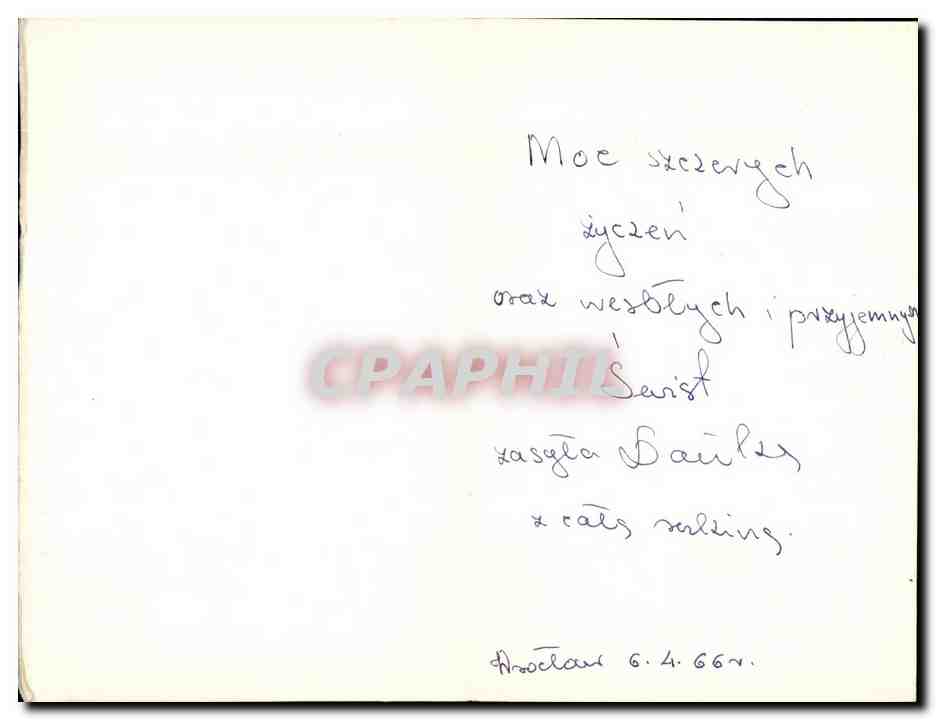 Moc szczerych
życzeń
oraz wesołych i przyjemnych
CPAPHIL
Świąt
zasyła
z całą rodziną.
Wrocław 6.4.66r.